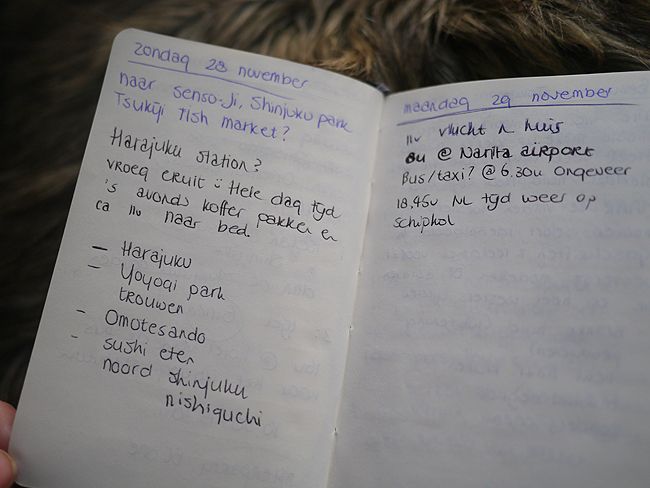 zondag 28 november
naar Senso-Ji, Shinjuku park
Tsukiji fish market?
Harajuku station?
vroeg eruit :) Hele dag tijd
's avonds koffer pakken en
ca 11u naar bed.
– Harajuku
– Yoyogi park
trouwen
- Omotesando
- sushi eten
noord shinjuku
nishiguchi
maandag 29 november
11u vlucht n huis
8u @ Narita airport
Bus/taxi? @ 6.30u ongeveer
18.45u NL tijd weer op
schiphol